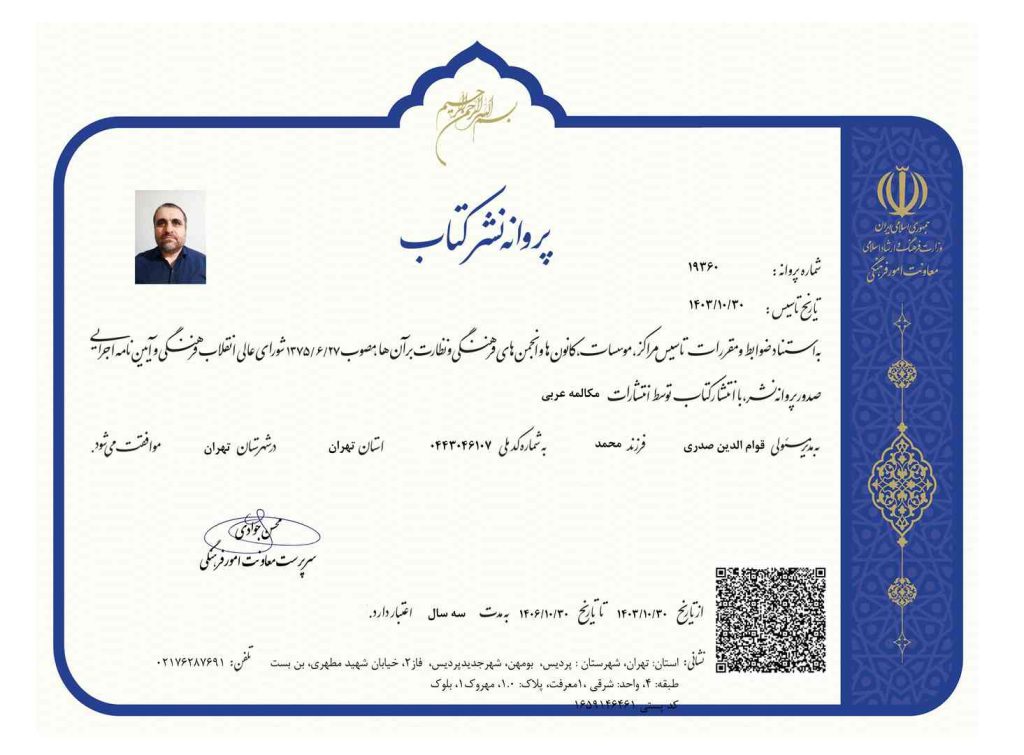 بسم الله الرحمن الرحیم
جمهوری اسلامی ایران
وزارت فرهنگ و ارشاد اسلامی
معاونت امور فرهنگی
پروانه نشر کتاب
شماره پروانه : ۱۹۳۶۰
تاریخ تاسیس : ۱۴۰۳/۱۰/۳۰
به استناد ضوابط و مقررات تاسیس مراکز، موسسات، کانون ها و انجمن های فرهنگی و نظارت بر آن ها مصوب ۱۳۷۵/۶/۲۷ شورای عالی انقلاب فرهنگی و آیین نامه اجرایی
صدور پروانه نشر، با انتشار کتاب توسط انتشارات مکالمه عربی
به مدیر مسئولی قوام الدین صدری فرزند محمد به شماره کد ملی ۰۴۴۳۰۴۶۱۰۷ استان تهران در شهرستان تهران موافقت می شود.
محسن جوادی
سرپرست معاونت امور فرهنگی
از تاریخ ۱۴۰۳/۱۰/۳۰ تا تاریخ ۱۴۰۶/۱۰/۳۰ به مدت سه سال اعتبار دارد.
نشانی: استان: تهران، شهرستان : پردیس، بومهن، شهرجدیدپردیس، فاز۲، خیابان شهید مطهری، بن بست تلفن: ۰۲۱۷۶۲۸۷۶۹۱
طبقه: ۴، واحد: شرقی ،۱معرفت، پلاک: ۱.۰، مهروک۱، بلوک
کد پستی ۱۶۵۹۱۴۶۴۶۱